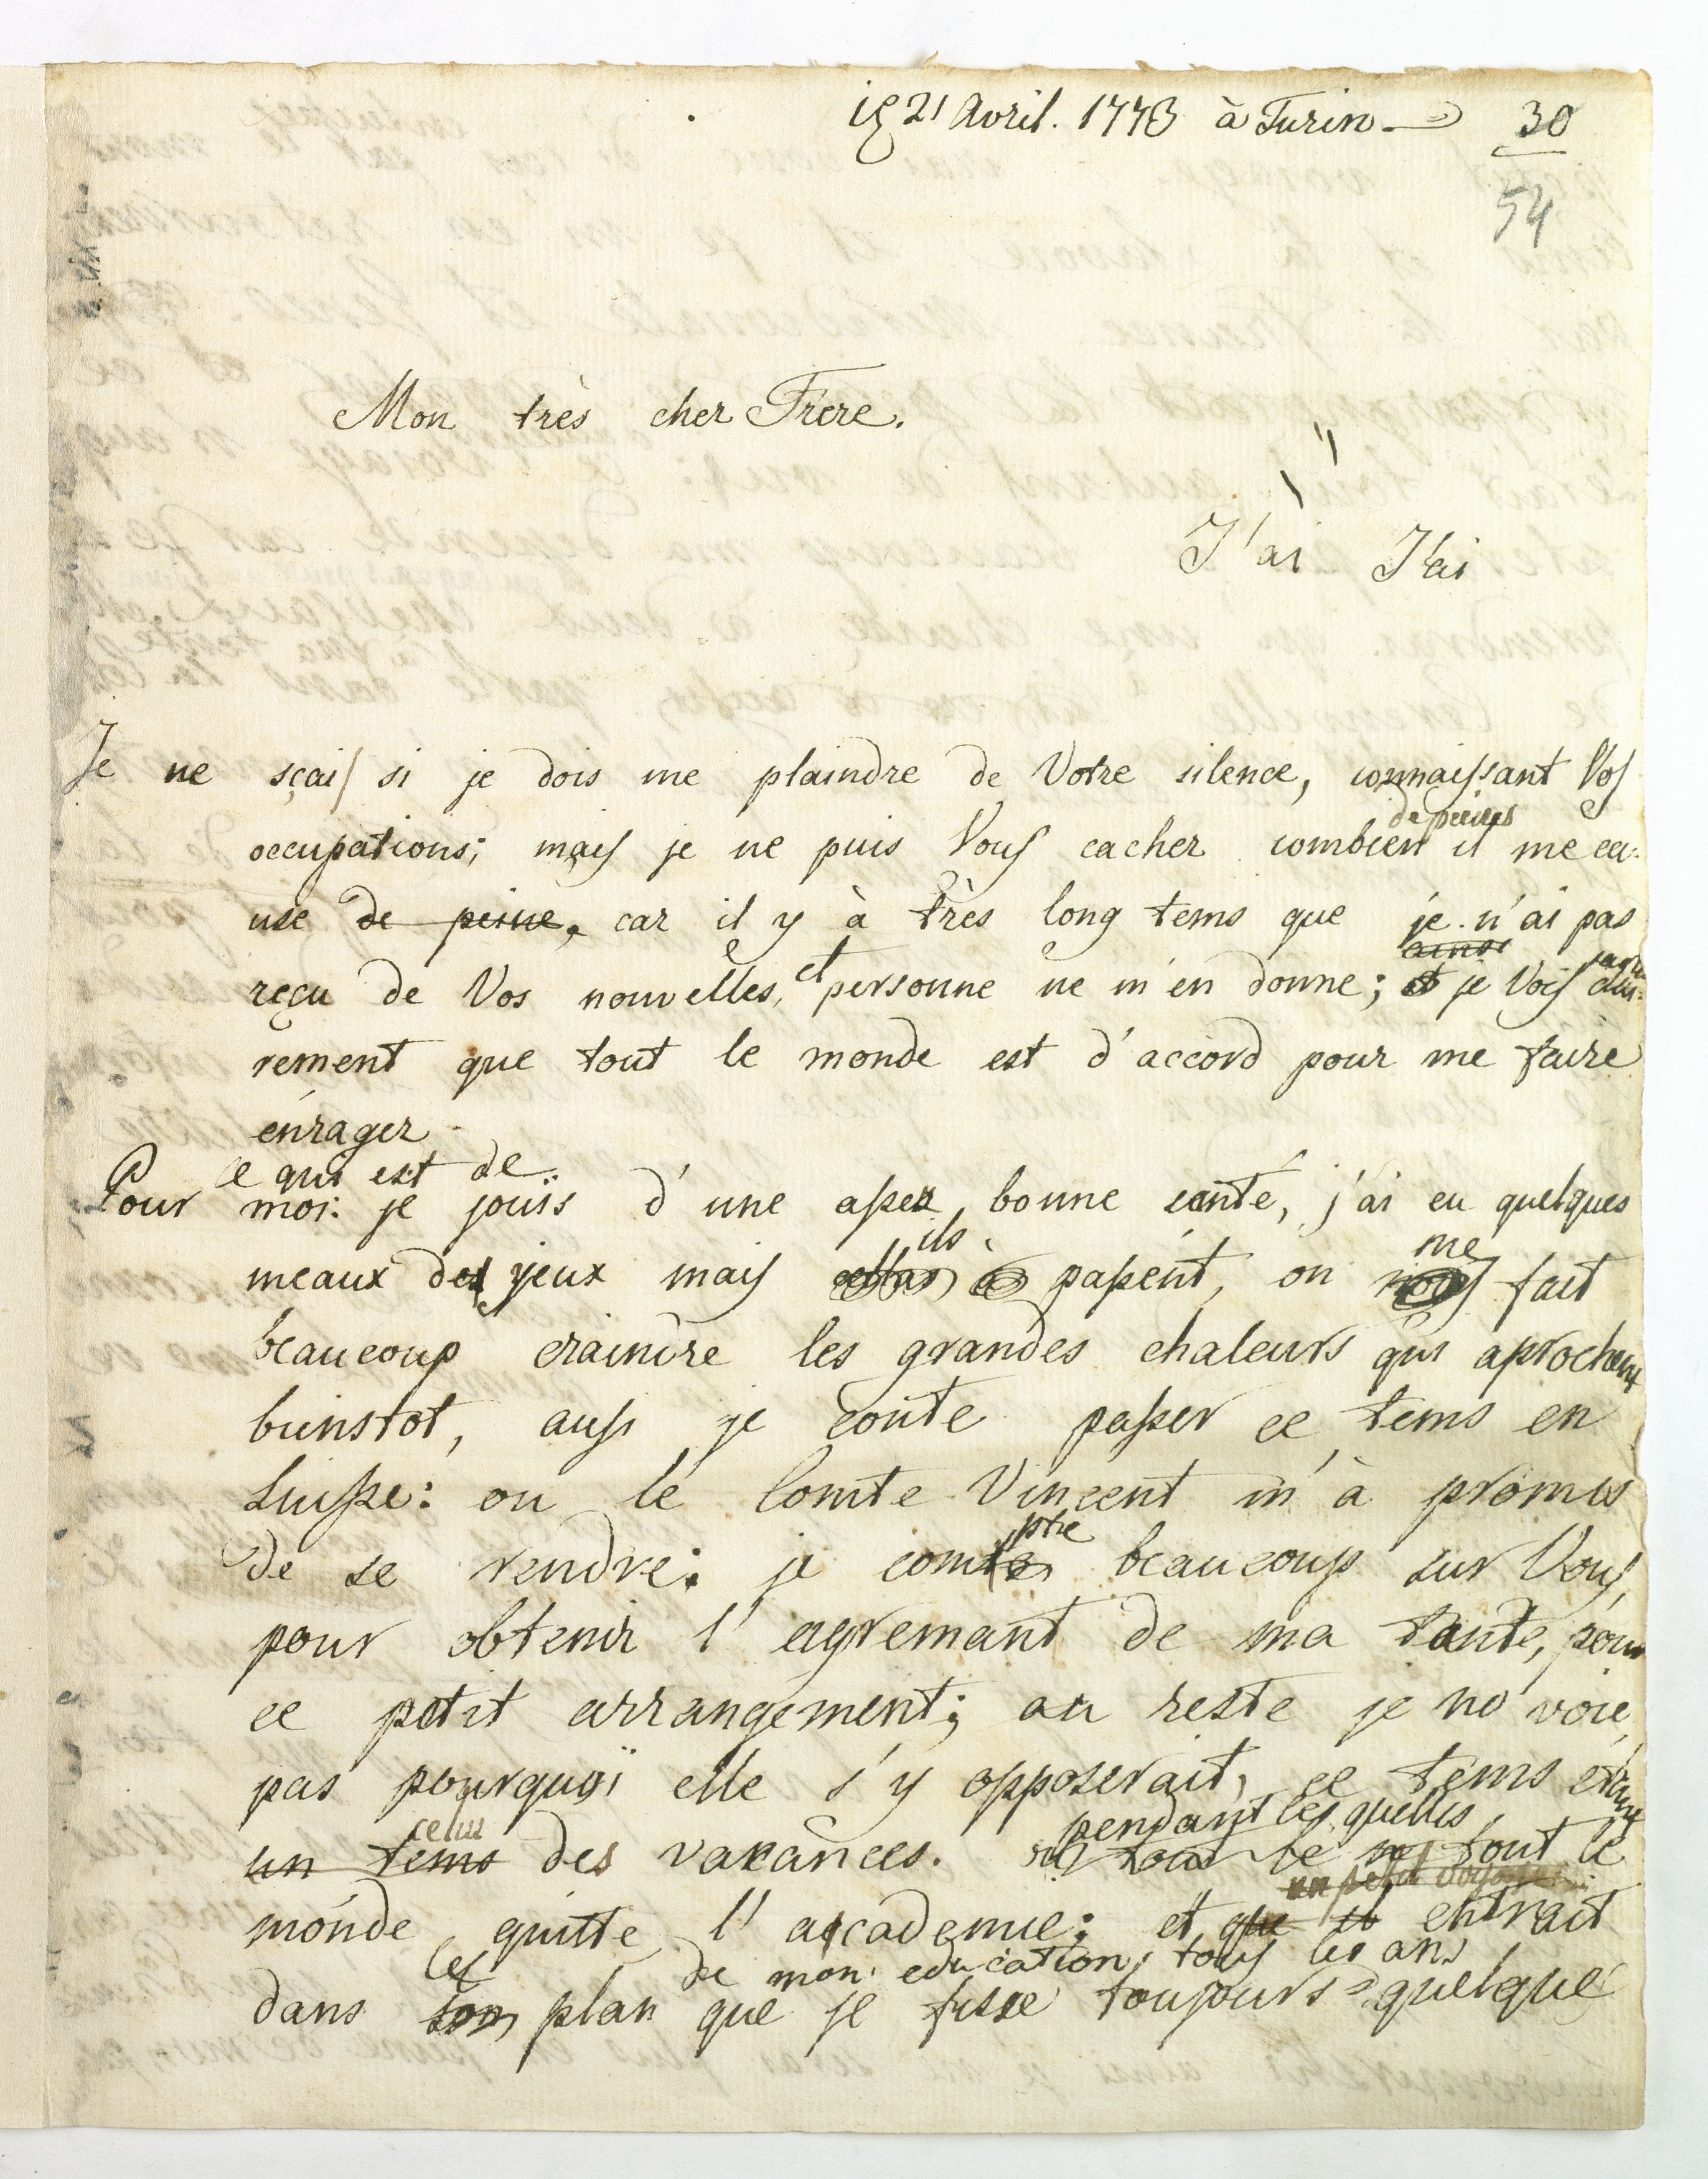 21 Avril. 1773 à Turin
30
54
Mon très cher Frere.
J'ai J'ai
Je ne sçais si je dois me plaindre de Votre silence, connaissant Vos
de peines
occupations; mais je ne puis Vous cacher combien il me ca:
use de peine, car il y à très long tems que je n'ai pas
ainsi
reçu de Vos nouvelles, et personne ne m'en donne; et je Vois clai:
rement que tout le monde est d'accord pour me faire
énrager
ce qui est de
Pour moi: je jouïs d'une assez bonne santé, j'ai eu quelques
ils me
meaux des yeux mais passent, on nous fait
beaucoup craindre les grandes chaleurs qui aprochent
bienstot, aussi je conte passer ce tems en
Suisse: ou le Comte Vincent m'à promis
ptre
de se rendre: je comte beaucoup sur Vous,
pour obtenir l'agremant de ma tante, pour
ce petit arrangement; au reste je ne voie
pas pourquoi elle s'y opposerait, ce tems etant
celui pendant les quelles
un tems des vakances. tout le tout le
un petit voyage
monde quitte l'accademie: et que il entrait
les de mon education, tous les ans
dans son plan que je fisse toujours quelque